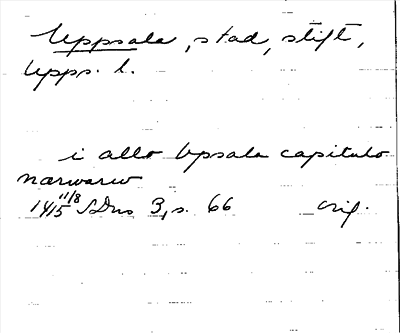 Uppsala, stad, stift,
Upps. l.
i allo Upsala capitulo
narwaro
11/8
1415 SDns 3, s. 66 orig.